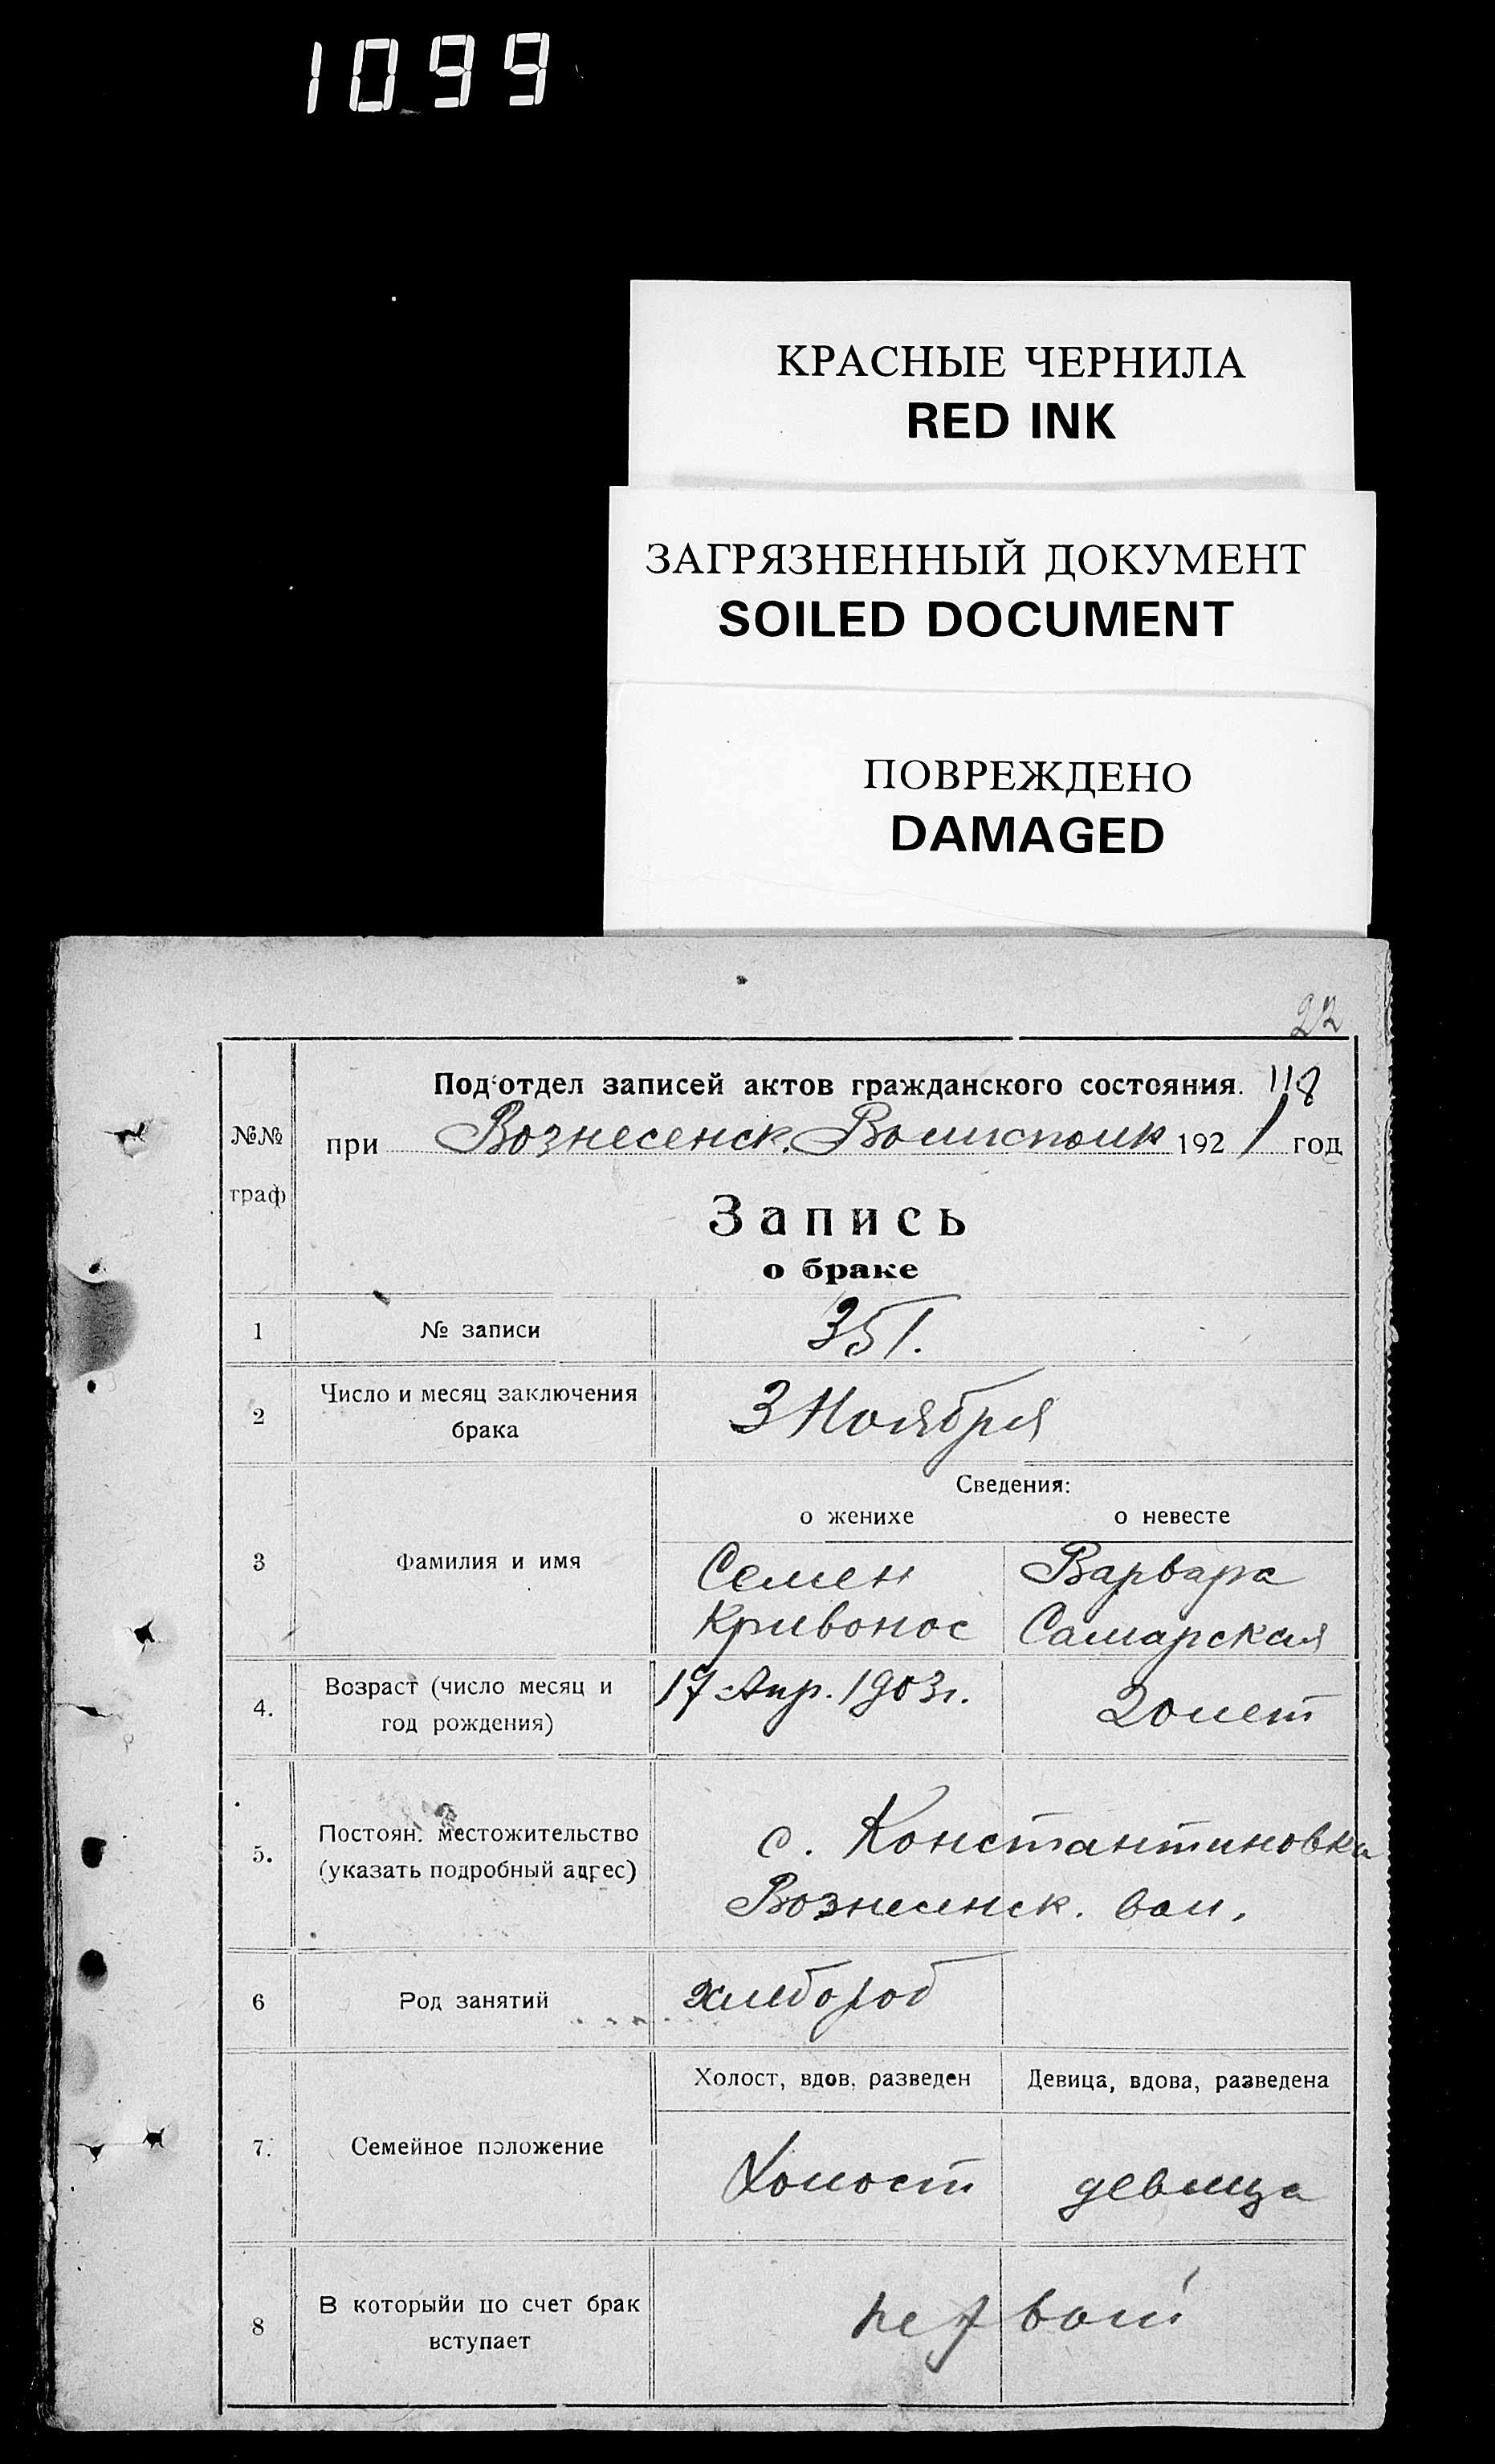 1099
КРАСНЫЕ ЧЕРНИЛА
RED INK
ЗАГРЯЗНЕННЫЙ ДОКУМЕНТ
SOILED DOCUMENT
ПОВРЕЖДЕНО
DAMAGED
22
Под‘отдел записей актов гражданского состояния. 118
№№ граф
при Вознесенск. Волисполк 1921 год
Запись
о браке
1 № записи 351.
2 Число и месяц заключения
брака 3 Ноября
Сведения:
о женихе о невесте
3 Фамилия и имя Семен Варвара
Кривонос Самарская
4. Возраст (число месяц и
год рождения) 17 Апр. 1903 г. 20 лет
5. Постоян. местожительство
(указать подробный адрес) с. Константиновка
Вознесенск. вол.
6 Род занятий хлебороб
Холост, вдов, разведен Девица, вдова, разведена
7. Семейное положение Холост девица
8 В которыйи по счет брак
вступает первый